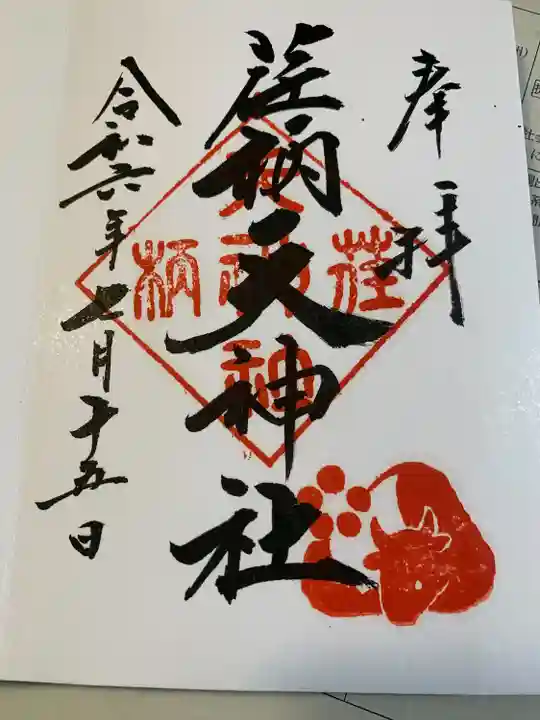 奉拝
荏柄天神社
令和六年七月十五日